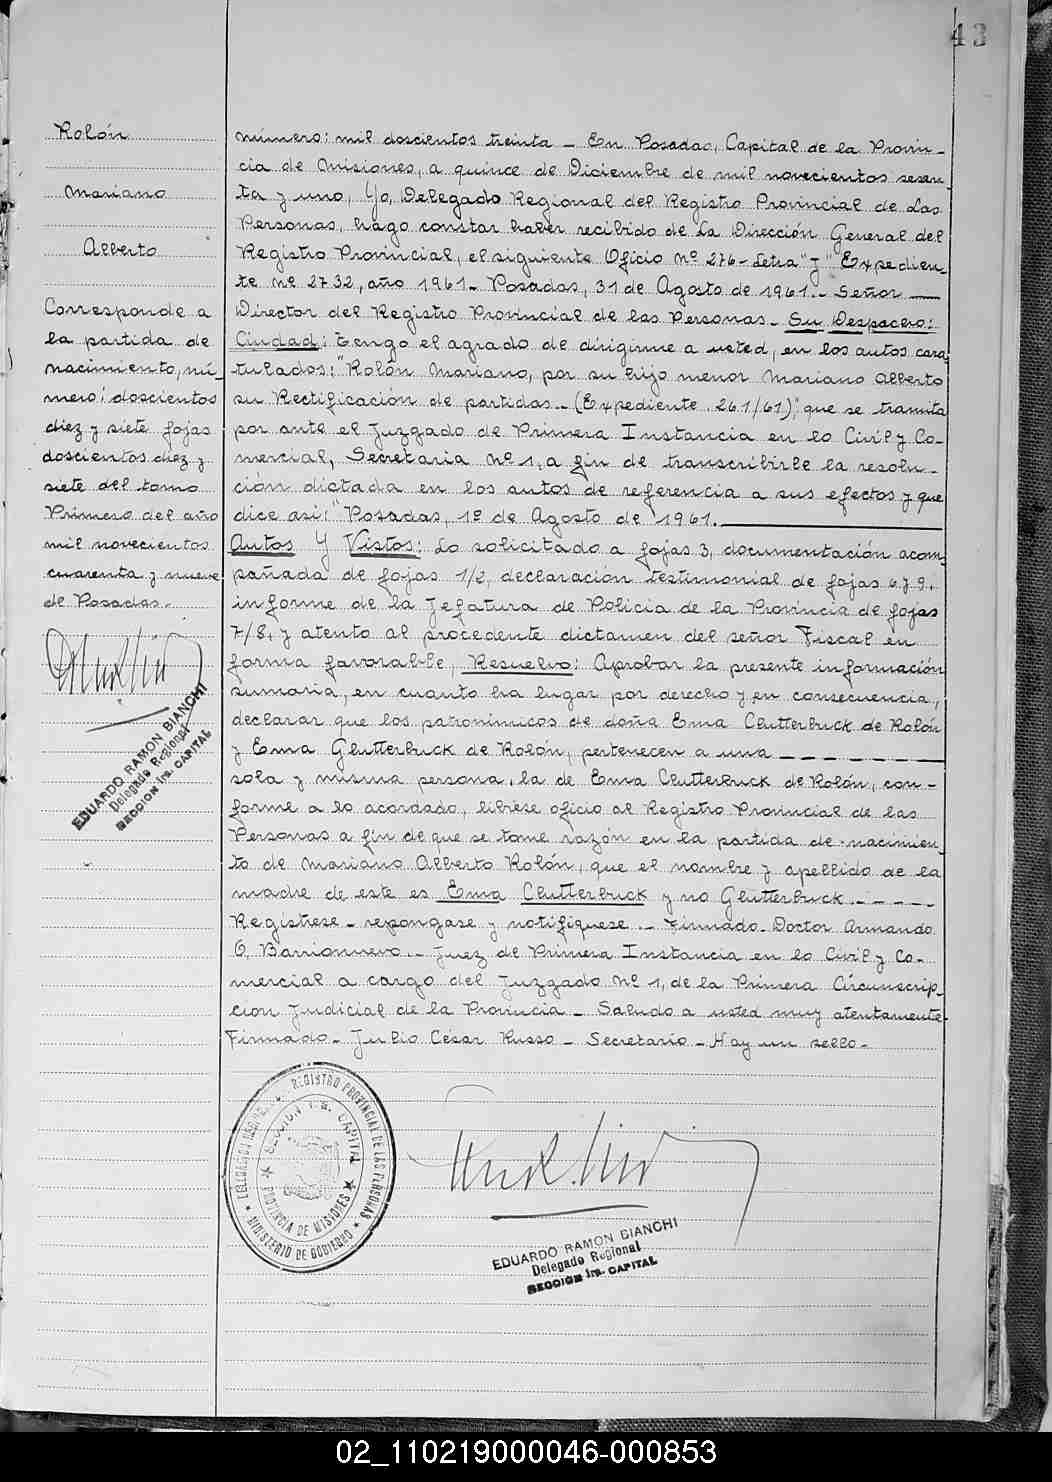 43
Rolón
Mariano
Alberto
Corresponde a
la partida de
nacimiento, nú-
mero: doscientos
diez y siete fojas
doscientos diez y
siete del tomo
Primero del año
mil novecientos
cuarenta y nueve
de Posadas.-
EDUARDO RAMON BIANCHI
Delegado Regional
SECCION 1ra. CAPITAL
número: mil doscientos treinta - En Posadas, Capital de la Provin-
cia de Misiones, a quince de Diciembre de mil novecientos sesen-
ta y uno, Yo, Delegado Regional del Registro Provincial de las
Personas, hago constar haber recibido de la Dirección General del
Registro Provincial, el siguiente Oficio nº 276-Letra "J" Expedien-
te nº 2732, año 1961.- Posadas, 31 de Agosto de 1961.- Señor
Director del Registro Provincial de las Personas.- Su Despacho:
Ciudad: tengo el agrado de dirigirme a usted, en los autos cara-
tulados: "Rolón Mariano, por su hijo menor Mariano Alberto
su Rectificación de partidas.- (Expediente. 261/61)", que se tramita
por ante el Juzgado de Primera Instancia en lo Civil y Co-
mercial, Secretaria nº 1, a fin de transcribirle la resolu-
ción dictada en los autos de referencia a sus efectos y que
dice asi: "Posadas, 1º de Agosto de 1961.
Autos Y Vistos: Lo solicitado a fojas 3, documentación acom-
pañada de fojas 1/2, declaración testimonial de fojas 6 y 9,
informe de la Jefatura de Policia de la Provincia de fojas
7/8, y atento al procedente dictamen del señor Fiscal en
forma favorable, Resuelvo: Aprobar la presente información
sumaria, en cuanto ha lugar por derecho y en consecuencia,
declarar que los patronimicos de doña Ema Clutterbuck de Rolón
y Ema Glutterbuck de Rolón, pertenecen a una - - - - - - - -
sola y misma persona, la de Ema Clutterbuck de Rolón, con-
forme a lo acordado, librese oficio al Registro Provincial de las
Personas a fin de que se tome razón en la partida de nacimien-
to de Mariano Alberto Rolón, que el nombre y apellido de la
madre de este es Ema Clutterbuck y no Glutterbuck.- - - - -
Registrese - repongase y notifiquese.- Firmado - Doctor Armando
O, Barrionuevo.- Juez de Primera Instancia en lo Civil y Co-
mercial a cargo del Juzgado nº 1, de la Primera Circunscrip-
cion Judicial de la Provincia - Saludo a usted muy atentamente-
Firmado - Julio César Russo - Secretario - Hay un sello.-
REGISTRO PROVINCIAL DE LAS PERSONAS
SECCION 1ra. CAPITAL
PROVINCIA DE MISIONES
MINISTERIO DE GOBIERNO
EDUARDO RAMON BIANCHI
Delegado Regional
SECCION 1ra. CAPITAL
02_110219000046-000853